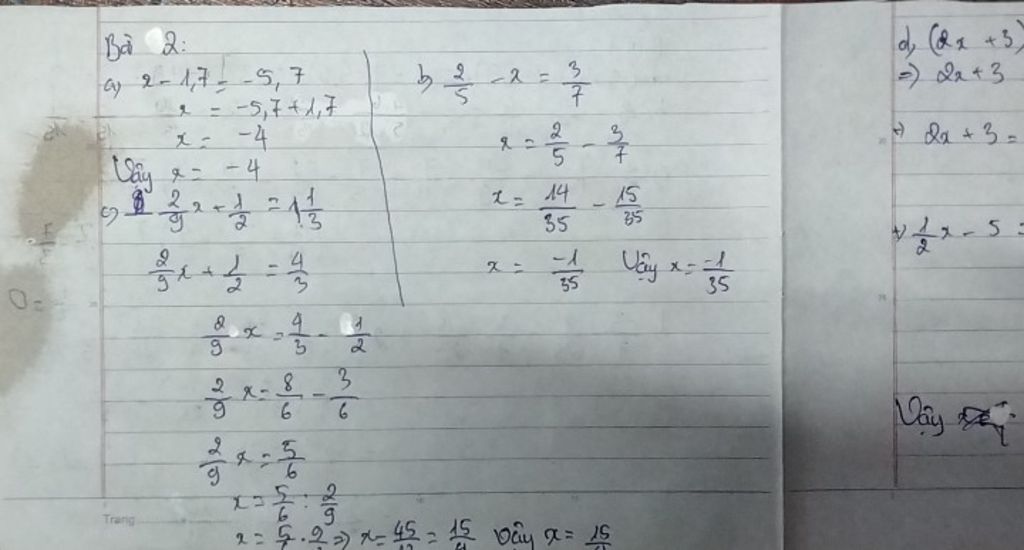 Bài 2:
a) x - 1,7 = -5,7
x = -5,7 + 1,7
x = -4
Vậy x = -4
b) 2/5 - x = 3/7
x = 2/5 - 3/7
x = 14/35 - 15/35
x = -1/35 Vậy x = -1/35
c) 2/9 x + 1/2 = 1 1/3
2/9 x + 1/2 = 4/3
2/9 x = 4/3 - 1/2
2/9 x = 8/6 - 3/6
2/9 x = 5/6
x = 5/6 : 2/9
⇒ x = 45/ = 15/ Vậy x = 15/
Trang
d, (2x + 3)
⇒ 2x + 3
2x + 3 =
1/2 x - 5 =
Vậy